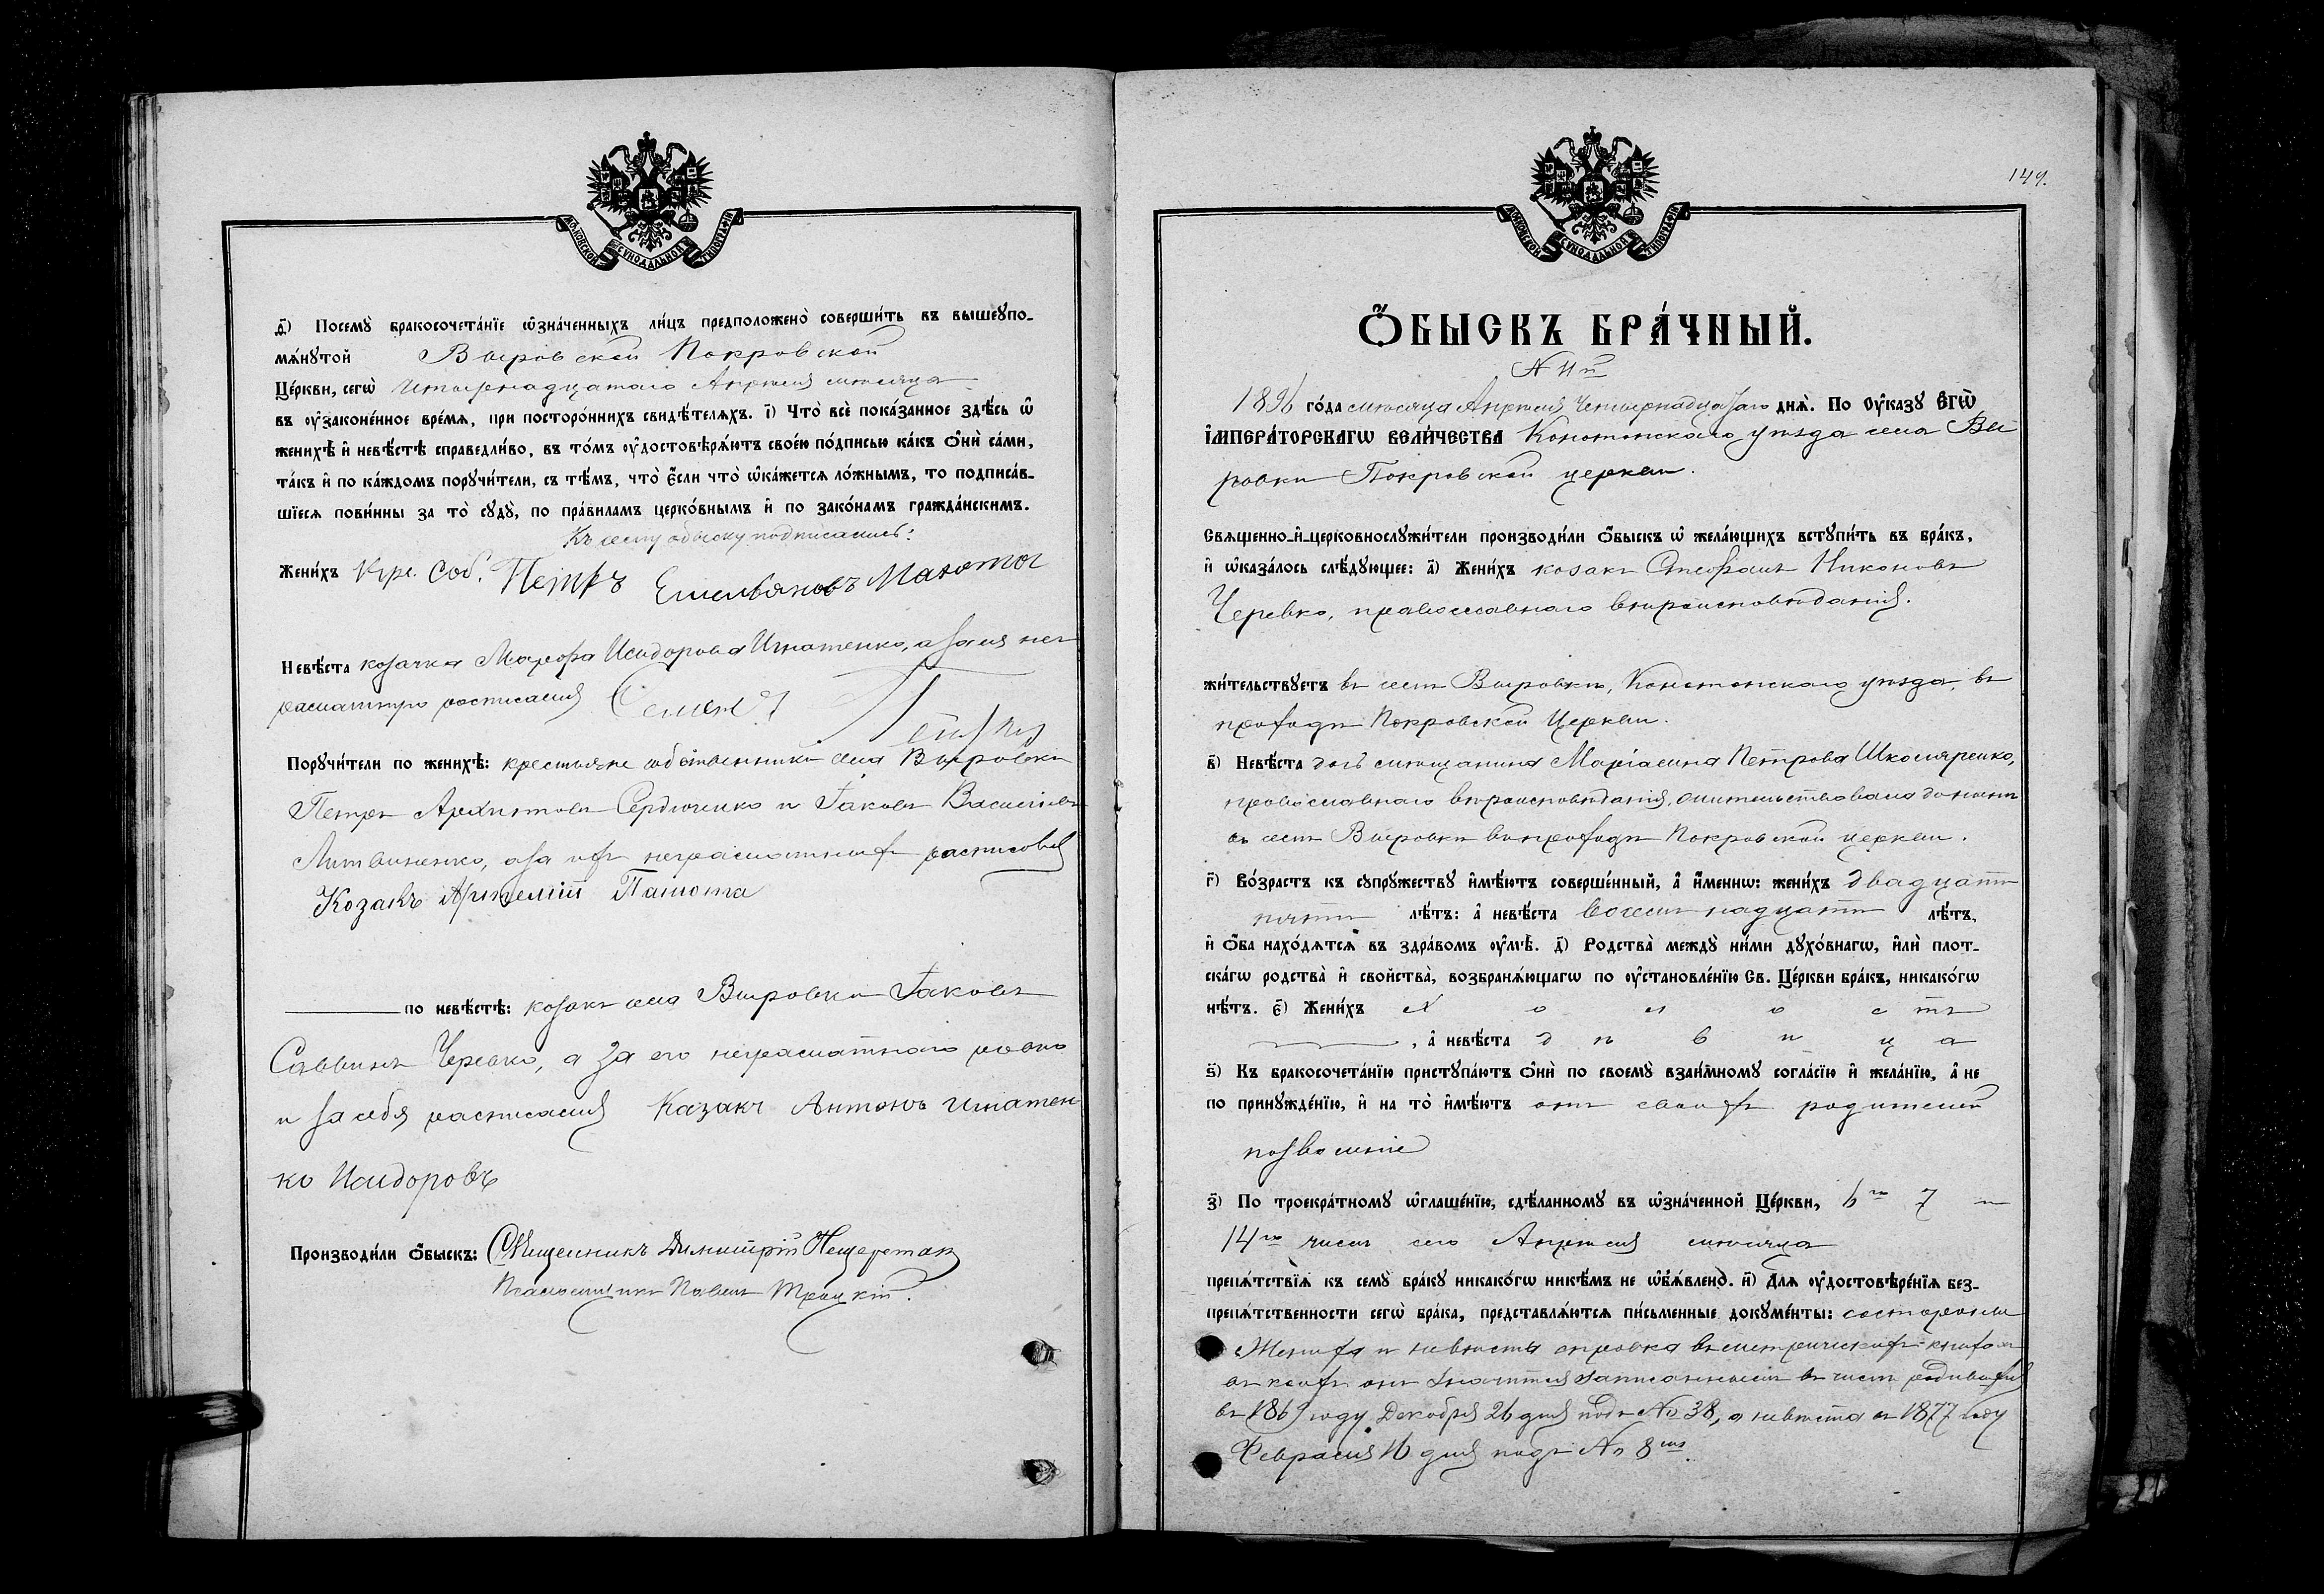 МОСКОВСКОЙ СѴНОДАЛЬНОЙ ТИПОГРАФІИ
д҃) Посемꙋ̀ бракосочета́нїе ѡ҆зна́ченныхъ ли́цъ предположено̀ соверши́ть въ вышеꙋпо-
мѧ́нꙋтой Выровской Покровской
Це́ркви, сегѡ̀ Четырнадцатаго Апреля месяца
въ ᲂу҆законе́нное вре́мѧ, при посторо́ннихъ свидѣ́телѧхъ. і҃) Что̀ всѐ пока́занное здѣ́сь ѡ҆
женихѣ̀ и҆ невѣ́стѣ справедли́во, въ то́мъ ᲂу҆достовѣрѧ́ютъ свое́ю по́дписью ка́къ ѻ҆нѝ са́ми,
та́къ и҆ по ка́ждомъ порꙋчи́тели, съ тѣ́мъ, что̀ є҆́сли что̀ ѡ҆ка́жетсѧ ло́жнымъ, то подписа́в-
шїесѧ пови́нны за то̀ сꙋдꙋ̀, по пра́виламъ церко́внымъ и҆ по зако́намъ гражда́нскимъ.
Къ сему обыску подписались:
Жени́хъ Кре. Соб. Петръ Емельяновъ
Невѣ́ста козачка Марфа Исидорова Игнатенко, а за нея не-
грамотную росписался Семенъ
Порꙋчи́тели по женихѣ̀: крестьяне собственники села Выровки
Петръ Архиповъ Сердюченко и Іаковъ Васильевъ
Литвиненко, а за ихъ неграмотныхъ расписовался
Козакъ Артемій
по невѣ́стѣ: козакъ села Выровки Іаковъ
Саввинъ Черевко, а за его неграмотнаго ровно
и за себя расписался Казакъ Антонъ Игнатен
ко Исидоровъ
Производи́ли ѻ҆́быскъ: Священникъ Димитрій Нещеретовъ
Псаломщикъ Павелъ Троцкій.
149.
МОСКОВСКОЙ СѴНОДАЛЬНОЙ ТИПОГРАФІИ
Ѻ҆́БЫСКЪ БРА́ЧНЫЙ.
N 11й
1896 го́да месяца Апреля Четырнадцатаго днѧ̀. По ᲂу҆ка́зꙋ Є҆ГѠ̀
И҆МПЕРА́ТОРСКАГѠ ВЕЛИ́ЧЕСТВА Конотопскаго уезда села Вы
ровки Покровской церкви.
Свѧще́нно-и҆-церковнослꙋжи́тели производи́ли ѻ҆́быскъ ѡ҆ жела́ющихъ встꙋпи́ть въ бра́къ,
и҆ ѡ҆каза́лось слѣ́дꙋющее: а҃) Жени́хъ козакъ Стефанъ Никоновъ
Черевко, православнаго вероисповеданія.
жи́тельствꙋетъ въ селе Выровке, Конотопскаго уезда, въ
приходе Покровской Церкви.
в҃) Невѣ́ста дочь мещанина Маріамна Петрова Школяренко,
православнаго вероисповеданія, жительствовала до ныне
въ селе Выровке въ приходе Покровской церкви.
г҃) Во́зрастъ къ сꙋпрꙋ́жествꙋ и҆мѣ́ютъ соверше́нный, а҆ и҆́меннѡ: жени́хъ двадцати
пяти лѣ́тъ: а҆ невѣ́ста восемнадцати лѣ́тъ,
и҆ ѻ҆́ба нахо́дѧтсѧ въ здра́вомъ ᲂу҆мѣ̀. д҃) Родства̀ междꙋ̀ ни́ми дꙋхо́внагѡ, и҆лѝ плот-
ска́гѡ родства̀ и҆ сво́йства̀, возбранѧ́ющагѡ по ᲂу҆становле́нїю Св. Це́ркви бра́къ, никако́гѡ
нѣ́тъ. є҃) Жени́хъ х о л о с т ъ
, а҆ невѣ́ста д е в и ц а
ѕ҃) Къ бракосочета́нїю пристꙋпа́ютъ ѻ҆нѝ по своемꙋ̀ взаи́мномꙋ согла́сїю и҆ жела́нїю, а҆ не
по принꙋжде́нїю, и҆ на то̀ и҆мѣ́ютъ отъ своихъ родителей
позволеніе
з҃) По троекра́тномꙋ ѡ҆глаше́нїю, сдѣ́ланномꙋ въ ѡ҆зна́ченной Це́ркви, 6го 7 и
14го чиселъ сего Апреля месяца
препѧ́тствїѧ къ семꙋ̀ бра́кꙋ никако́гѡ никѣ́мъ не ѡ҆б̾ѧ́влено̀. и҃) Длѧ ᲂу҆достовѣре́нїѧ без-
препѧ́тственности сегѡ̀ бра́ка, представлѧ́ютсѧ пи́сьменные докꙋме́нты: состороны
Жениха и невесты справка въ метрическихъ книгахъ
въ коихъ онъ значится записаннымъ въ числе родившихся
въ 1869 году Декабря 26 дня подъ № 38, а невеста въ 1877 году
Февраля 16 дня подъ № 8мъ.